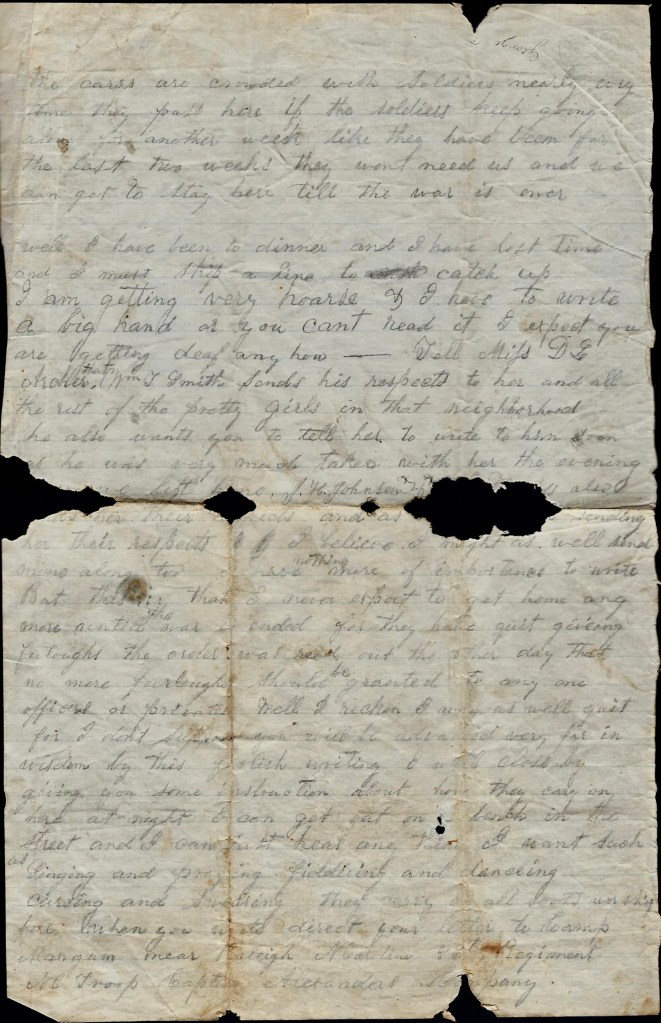 the carss are crowded with soldiers nearly evry
time they pass here if the soldiers keep going
along for another week like they have been for
the last two weeks they wont need us and we
can get to stay here till the war is over
well I have been to dinner and I have lost time
and I must skip a line to catch up
I am getting very hoarse & I have to write
a big hand or you cant read it I expect you
are getting deaf any how — Tell Miss D E
that Wm T Smith sends his respects to her and all
the rest of the pretty girls in that neighborhood
he also wants you to tell her to write to him soon
as he was very much taken with her the evening
we left home. J. H. Johnson also
their and as sending
her their respects I believe I might as well send
mine along too nothing more of importance to write
But this is that I never expect to get home any
more until the war is ended for they have quit giveing
furloughs the order was read out the other day that
no more furloughs should be granted to any one
officer or private Well I reckon I may as well quit
for I dont suppose you will be advanced very far in
wisdom by this foolish writing I will close by
giveing you some instruction about how they carry on
here at night I can get out on a bench in the
street and I can just hear any thing I want such
as Singing and praying fiddling and danceing
Cursing and Swaring they carry on all sorts
here When you write direct your letter to Camp
Mangum near Raleigh Regiment
N C Troop Captin Alexanders Company